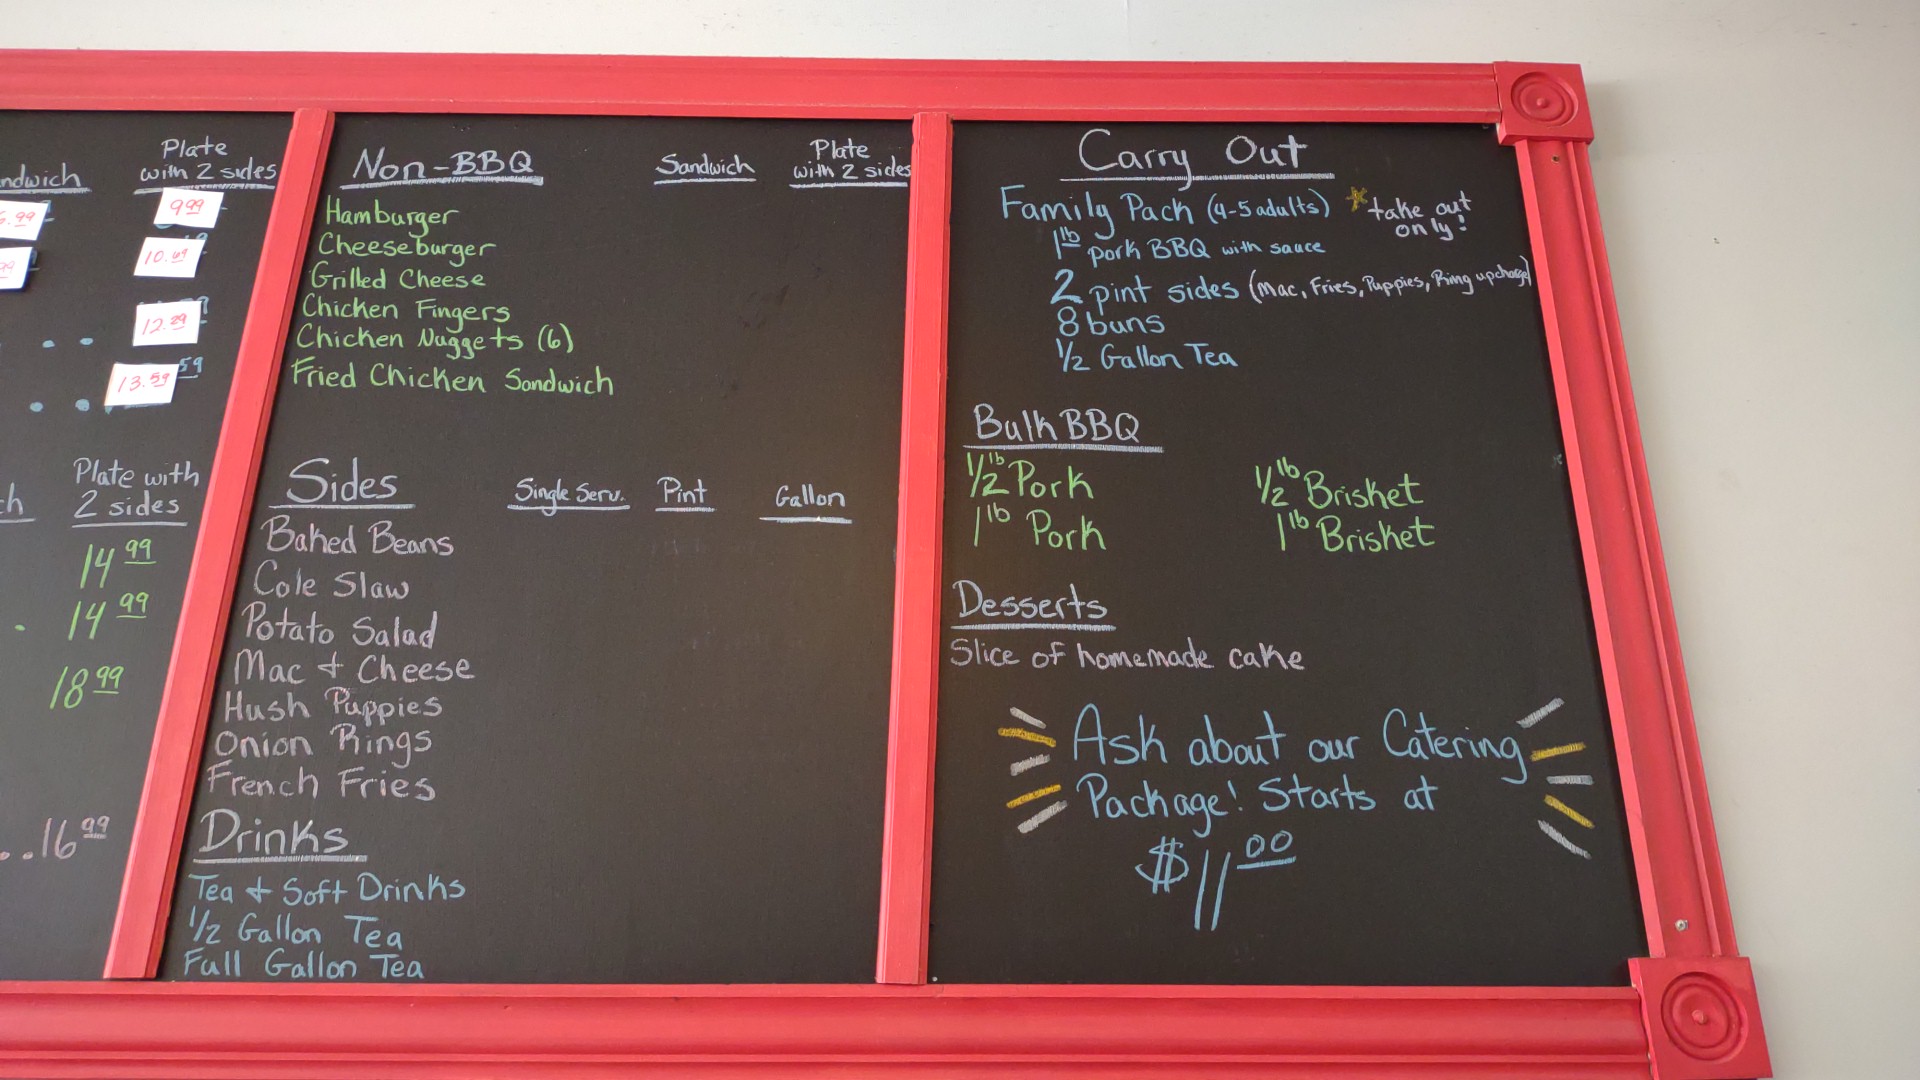 Plate
with 2 sides
9.99
10.49
12.29
13.59
Plate with
2 sides
14.99
14.99
18.99
..16.99
Non-BBQ Sandwich Plate with 2 sides
Hamburger
Cheeseburger
Grilled Cheese
Chicken Fingers
Chicken Nuggets (6)
Fried Chicken Sandwich
Sides Single Serv. Pint Gallon
Baked Beans
Cole Slaw
Potato Salad
Mac & Cheese
Hush Puppies
Onion Rings
French Fries
Drinks
Tea & Soft Drinks
1/2 Gallon Tea
Full Gallon Tea
Carry Out
Family Pack (4-5 adults) *take out only!
1lb pork BBQ with sauce
2 pint sides (Mac, Fries, Puppies, Ring upcharge)
8 buns
1/2 Gallon Tea
Bulk BBQ
1/2 lb Pork 1/2 lb Brisket
1 lb Pork 1 lb Brisket
Desserts
Slice of homemade cake
Ask about our Catering
Package! Starts at
$11.00